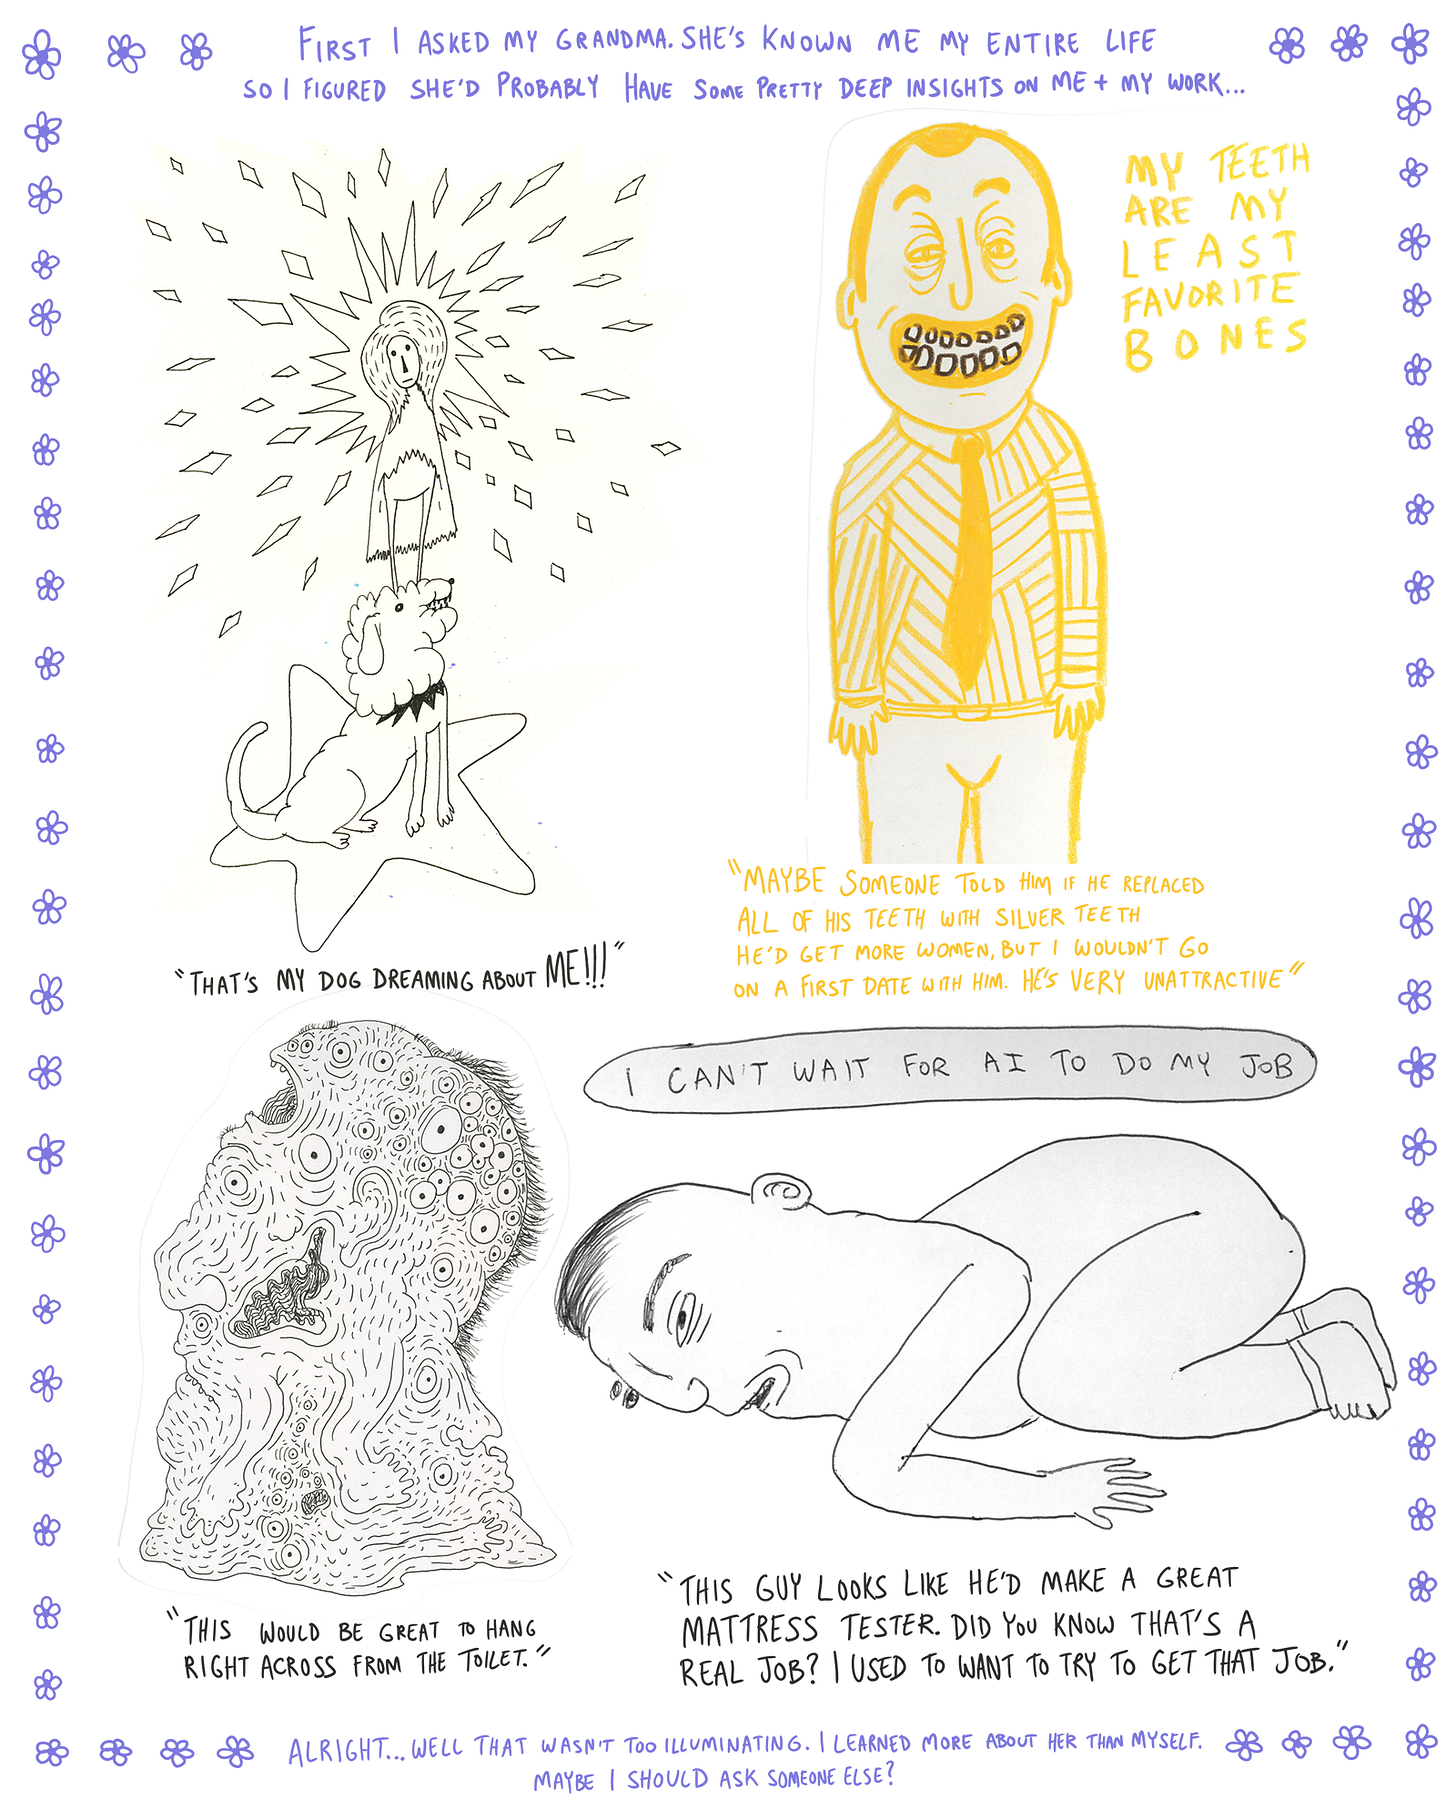 FIRST I ASKED MY GRANDMA. SHE'S KNOWN ME MY ENTIRE LIFE
SO I FIGURED SHE'D PROBABLY HAVE SOME PRETTY DEEP INSIGHTS ON ME + MY WORK...
MY TEETH
ARE MY
LEAST
FAVORITE
BONES
"THAT'S MY DOG DREAMING ABOUT ME!!!"
"MAYBE SOMEONE TOLD HIM IF HE REPLACED
ALL OF HIS TEETH WITH SILVER TEETH
HE'D GET MORE WOMEN, BUT I WOULDN'T GO
ON A FIRST DATE WITH HIM. HE'S VERY UNATTRACTIVE"
I CAN'T WAIT FOR AI TO DO MY JOB
"THIS WOULD BE GREAT TO HANG
RIGHT ACROSS FROM THE TOILET."
"THIS GUY LOOKS LIKE HE'D MAKE A GREAT
MATTRESS TESTER. DID YOU KNOW THAT'S A
REAL JOB? I USED TO WANT TO TRY TO GET THAT JOB."
ALRIGHT... WELL THAT WASN'T TOO ILLUMINATING. I LEARNED MORE ABOUT HER THAN MYSELF.
MAYBE I SHOULD ASK SOMEONE ELSE?